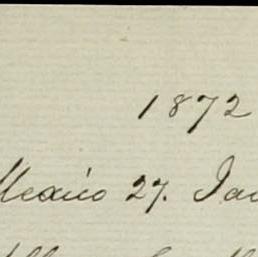 1872
Mexico 27. Jan